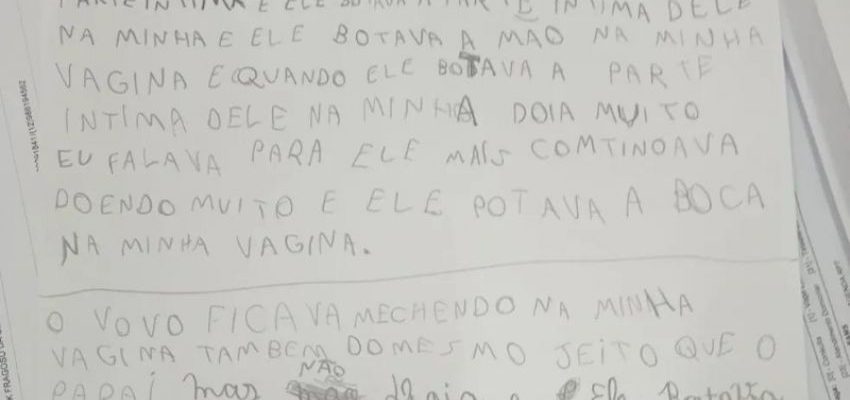 NA MINHA E ELE BOTAVA A MAO NA MINHA
VAGINA E QUANDO ELE BOTAVA A PARTE
INTIMA DELE NA MINHA DOIA MUITO
EU FALAVA PARA ELE MAIS COMTINOAVA
DOENDO MUITO E ELE POTAVA A BOCA
NA MINHA VAGINA.
O VOVO FICAVA MECHENDO NA MINHA
VAGINA TAMBEM DO MESMO JEITO QUE O
NÃO
PAPAI mas